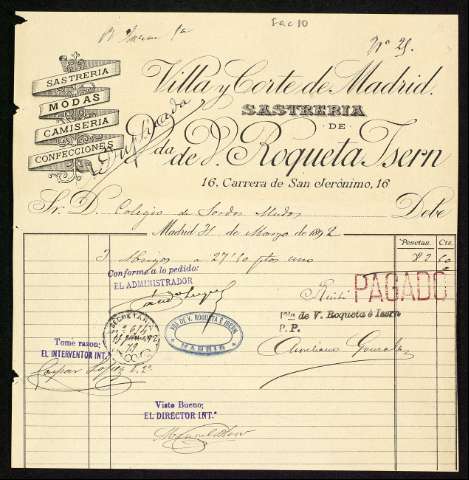 Nº 21.
Villa y Corte de Madrid.
SASTRERIA
MODAS
CAMISERIA
CONFECCIONES
Duplicada
SASTRERIA
DE
Vda de V. Roqueta Isern
16. Carrera de San Jerónimo, 16
Sr. D. Colegio de Sordos Mudos Debe
Madrid 31 de Marzo de 1892
Pesetas. Cts.
3 Abrigos a 27'50 ptas uno 82 50
Conforme a lo pedido:
EL ADMINISTRADOR
Recibí
PAGADO
Vda de V. Roqueta é Isern
P. P.
SECRETARIA
VDA. DE V. ROQUETA É ISERN
MADRID
Tomé razon:
EL INTERVENTOR INT.º
Visto Bueno:
EL DIRECTOR INT.º